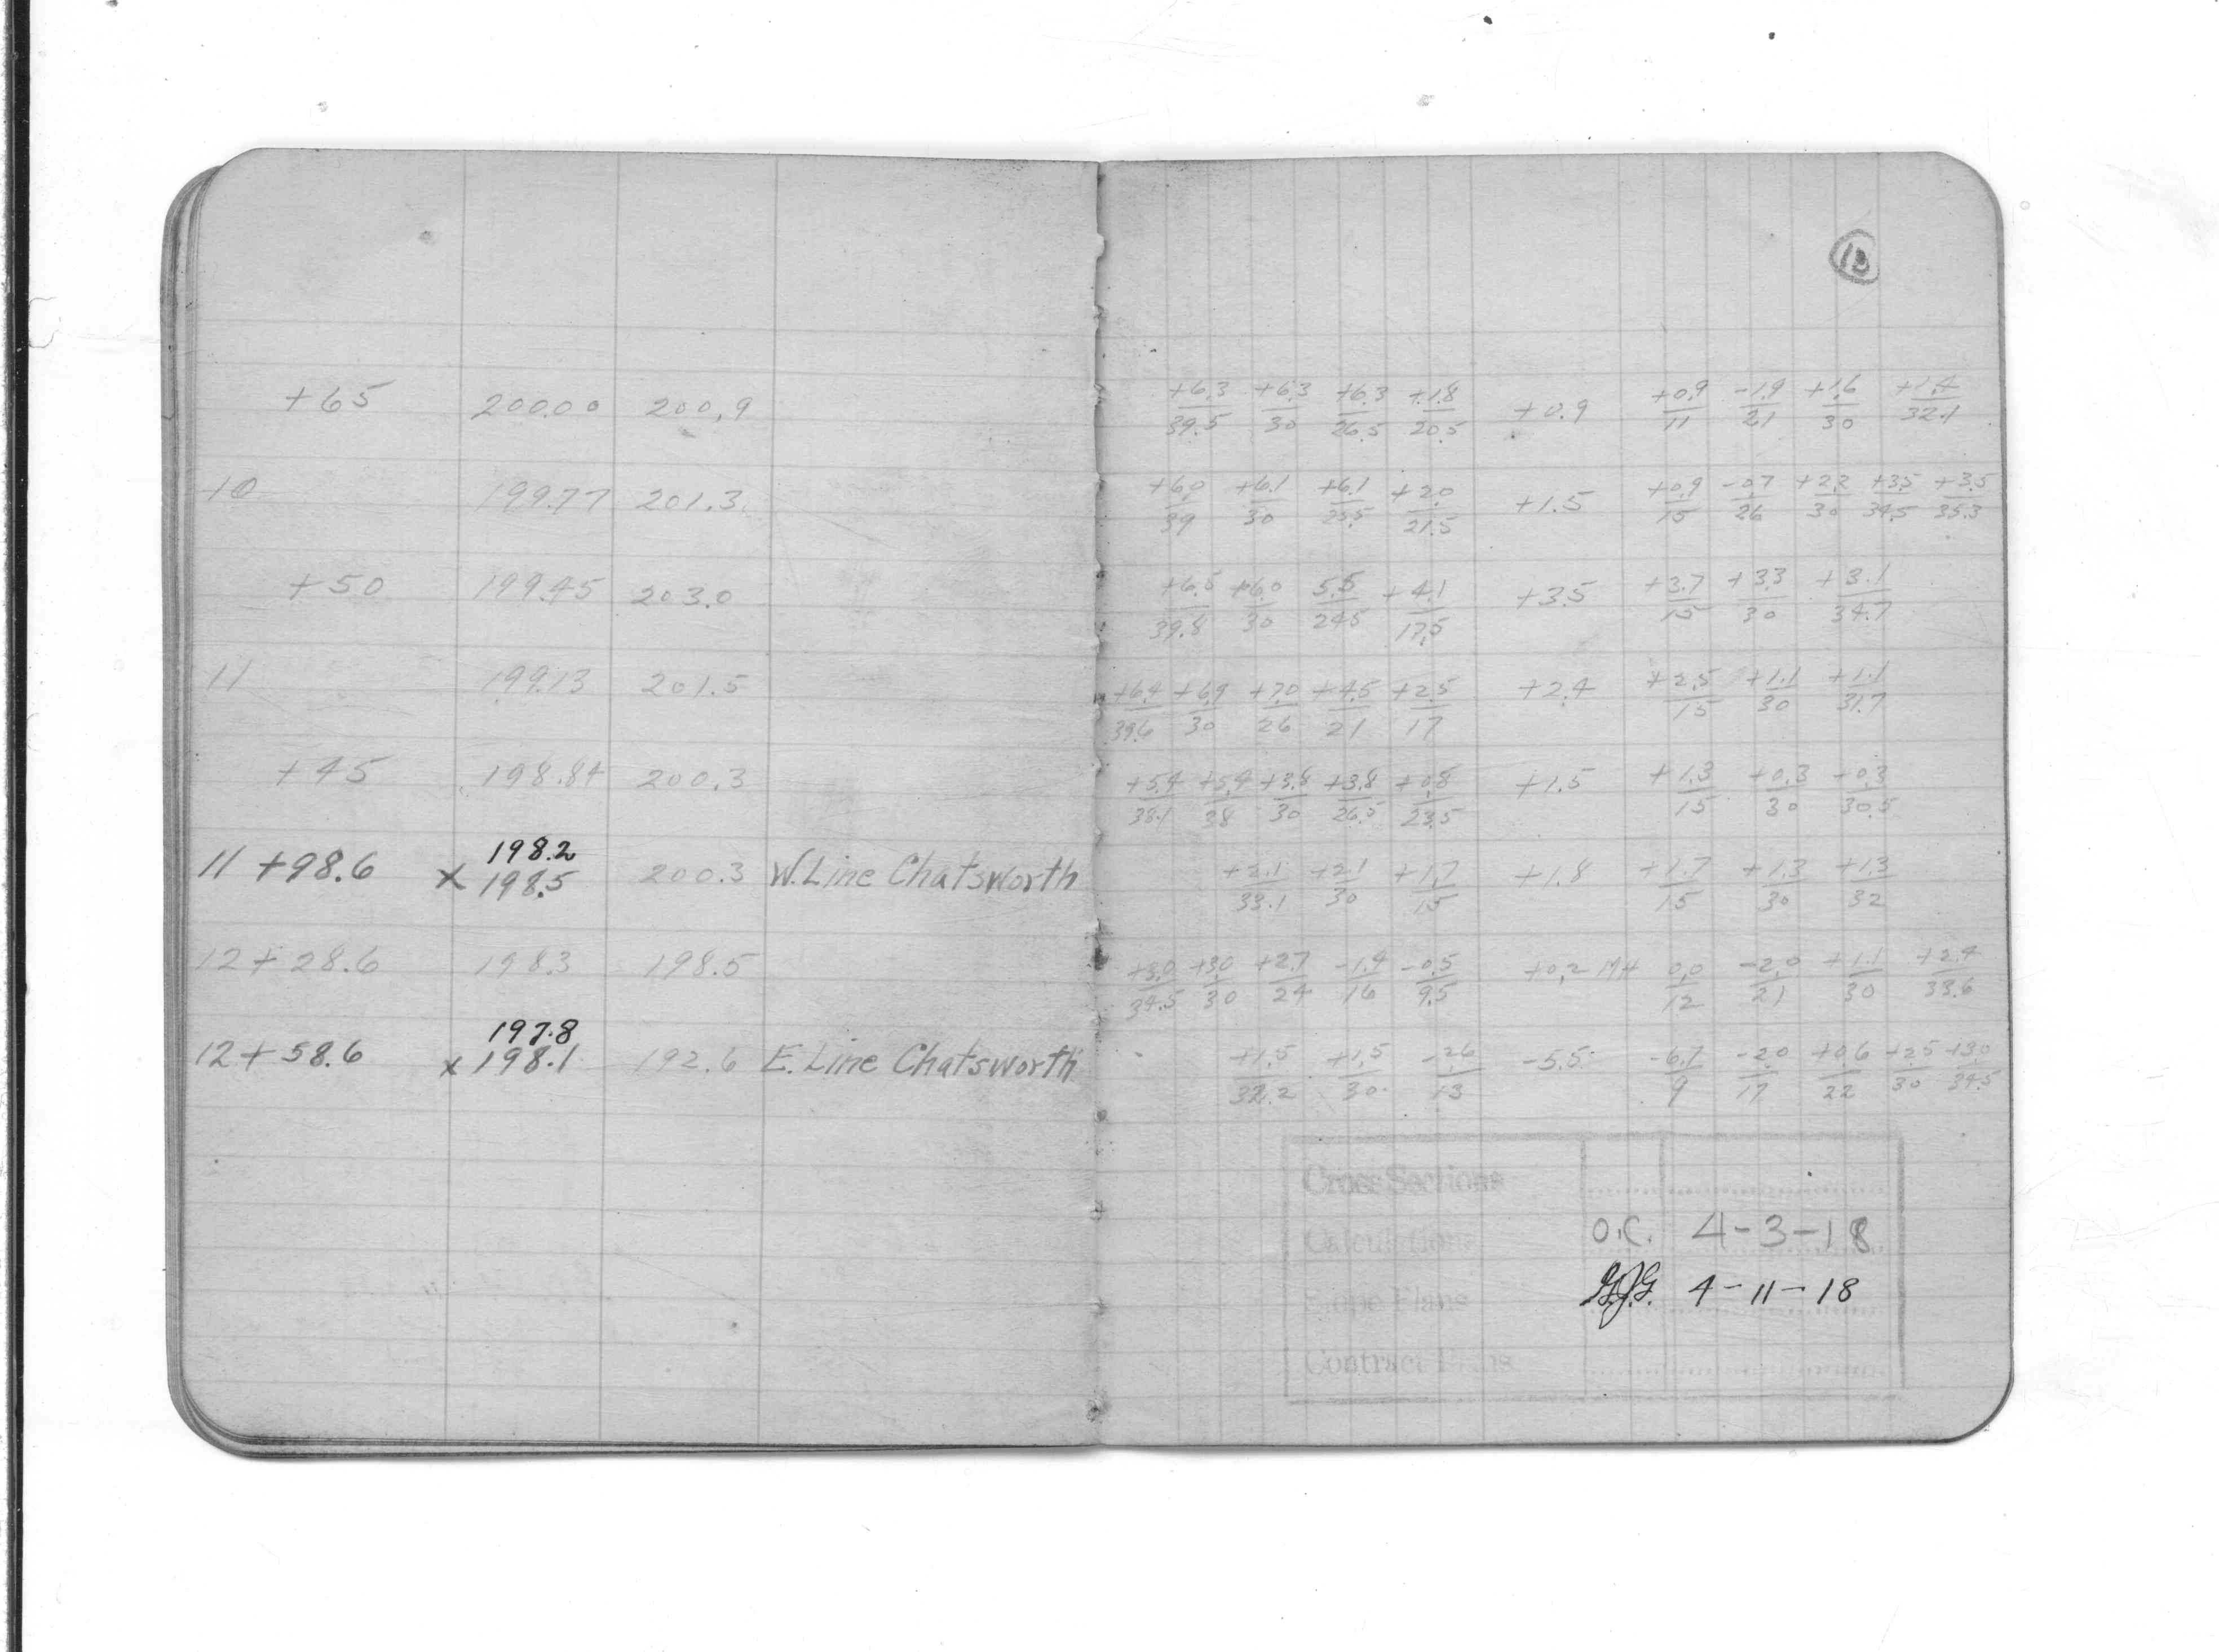 13
+65 200.00 200.9 +6.3/39.5 +6.3/30 +6.3/26.5 +1.8/20.5 +0.9 +0.9/11 -1.9/21 +1.6/30 +1.4/32.1
10 199.77 201.3 +6.0/39 +6.1/30 +6.1/25.5 +2.0/21.5 +1.5 +0.9/15 -0.7/26 +2.2/30 +3.5/34.5 +3.5/35.3
+50 199.45 203.0 +6.5/39.8 +6.0/30 5.5/24.5 +4.1/17.5 +3.5 +3.7/15 +3.3/30 +3.1/34.7
11 199.13 201.5 +6.4/39.6 +6.9/30 +7.0/26 +4.5/21 +2.5/17 +2.4 +2.5/15 +1.1/30 +1.1/31.7
+45 198.84 200.3 +5.4/38.1 +5.4/38 +3.8/30 +3.8/26.5 +0.8/23.5 +1.5 +1.3/15 +0.3/30 +0.3/30.5
198.2
11 +98.6 x 198.5 200.3 W. Line Chatsworth +2.1/33.1 +2.1/30 +1.7/15 +1.8 +1.7/15 +1.3/30 +1.3/32
12+28.6 198.3 198.5 +3.0/34.5 +3.0/30 +2.7/24 -1.4/16 -0.5/9.5 +0.2 MH 0.0/12 -2.0/21 +1.1/30 +2.4/33.6
197.8
12+58.6 x 198.1 192.6 E. Line Chatsworth +1.5/32.2 +1.5/30 -2.6/13 -5.5 -6.7/9 -2.0/17 +0.6/22 +2.5/30 +3.0/34.5
Cross Sections
Calculations O.C. 4-3-18
Slope Plans G.J.G. 4-11-18
Contract Plans